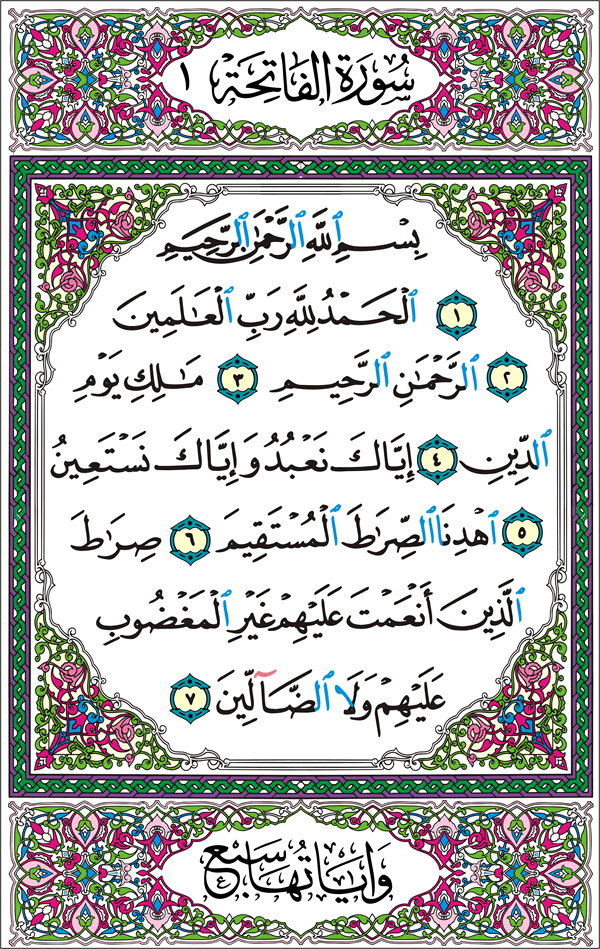 سُورَةُ الفَاتِحَةِ ١
بِسْمِ ٱللَّهِ ٱلرَّحْمَٰنِ ٱلرَّحِيمِ
١ ٱلْحَمْدُ لِلَّهِ رَبِّ ٱلْعَٰلَمِينَ
٢ ٱلرَّحْمَٰنِ ٱلرَّحِيمِ ٣ مَٰلِكِ يَوْمِ
ٱلدِّينِ ٤ إِيَّاكَ نَعْبُدُ وَإِيَّاكَ نَسْتَعِينُ
٥ ٱهْدِنَا ٱلصِّرَٰطَ ٱلْمُسْتَقِيمَ ٦ صِرَٰطَ
ٱلَّذِينَ أَنْعَمْتَ عَلَيْهِمْ غَيْرِ ٱلْمَغْضُوبِ
عَلَيْهِمْ وَلَا ٱلضَّآلِّينَ ٧
وَآيَاتُهَا سَبْعٌ